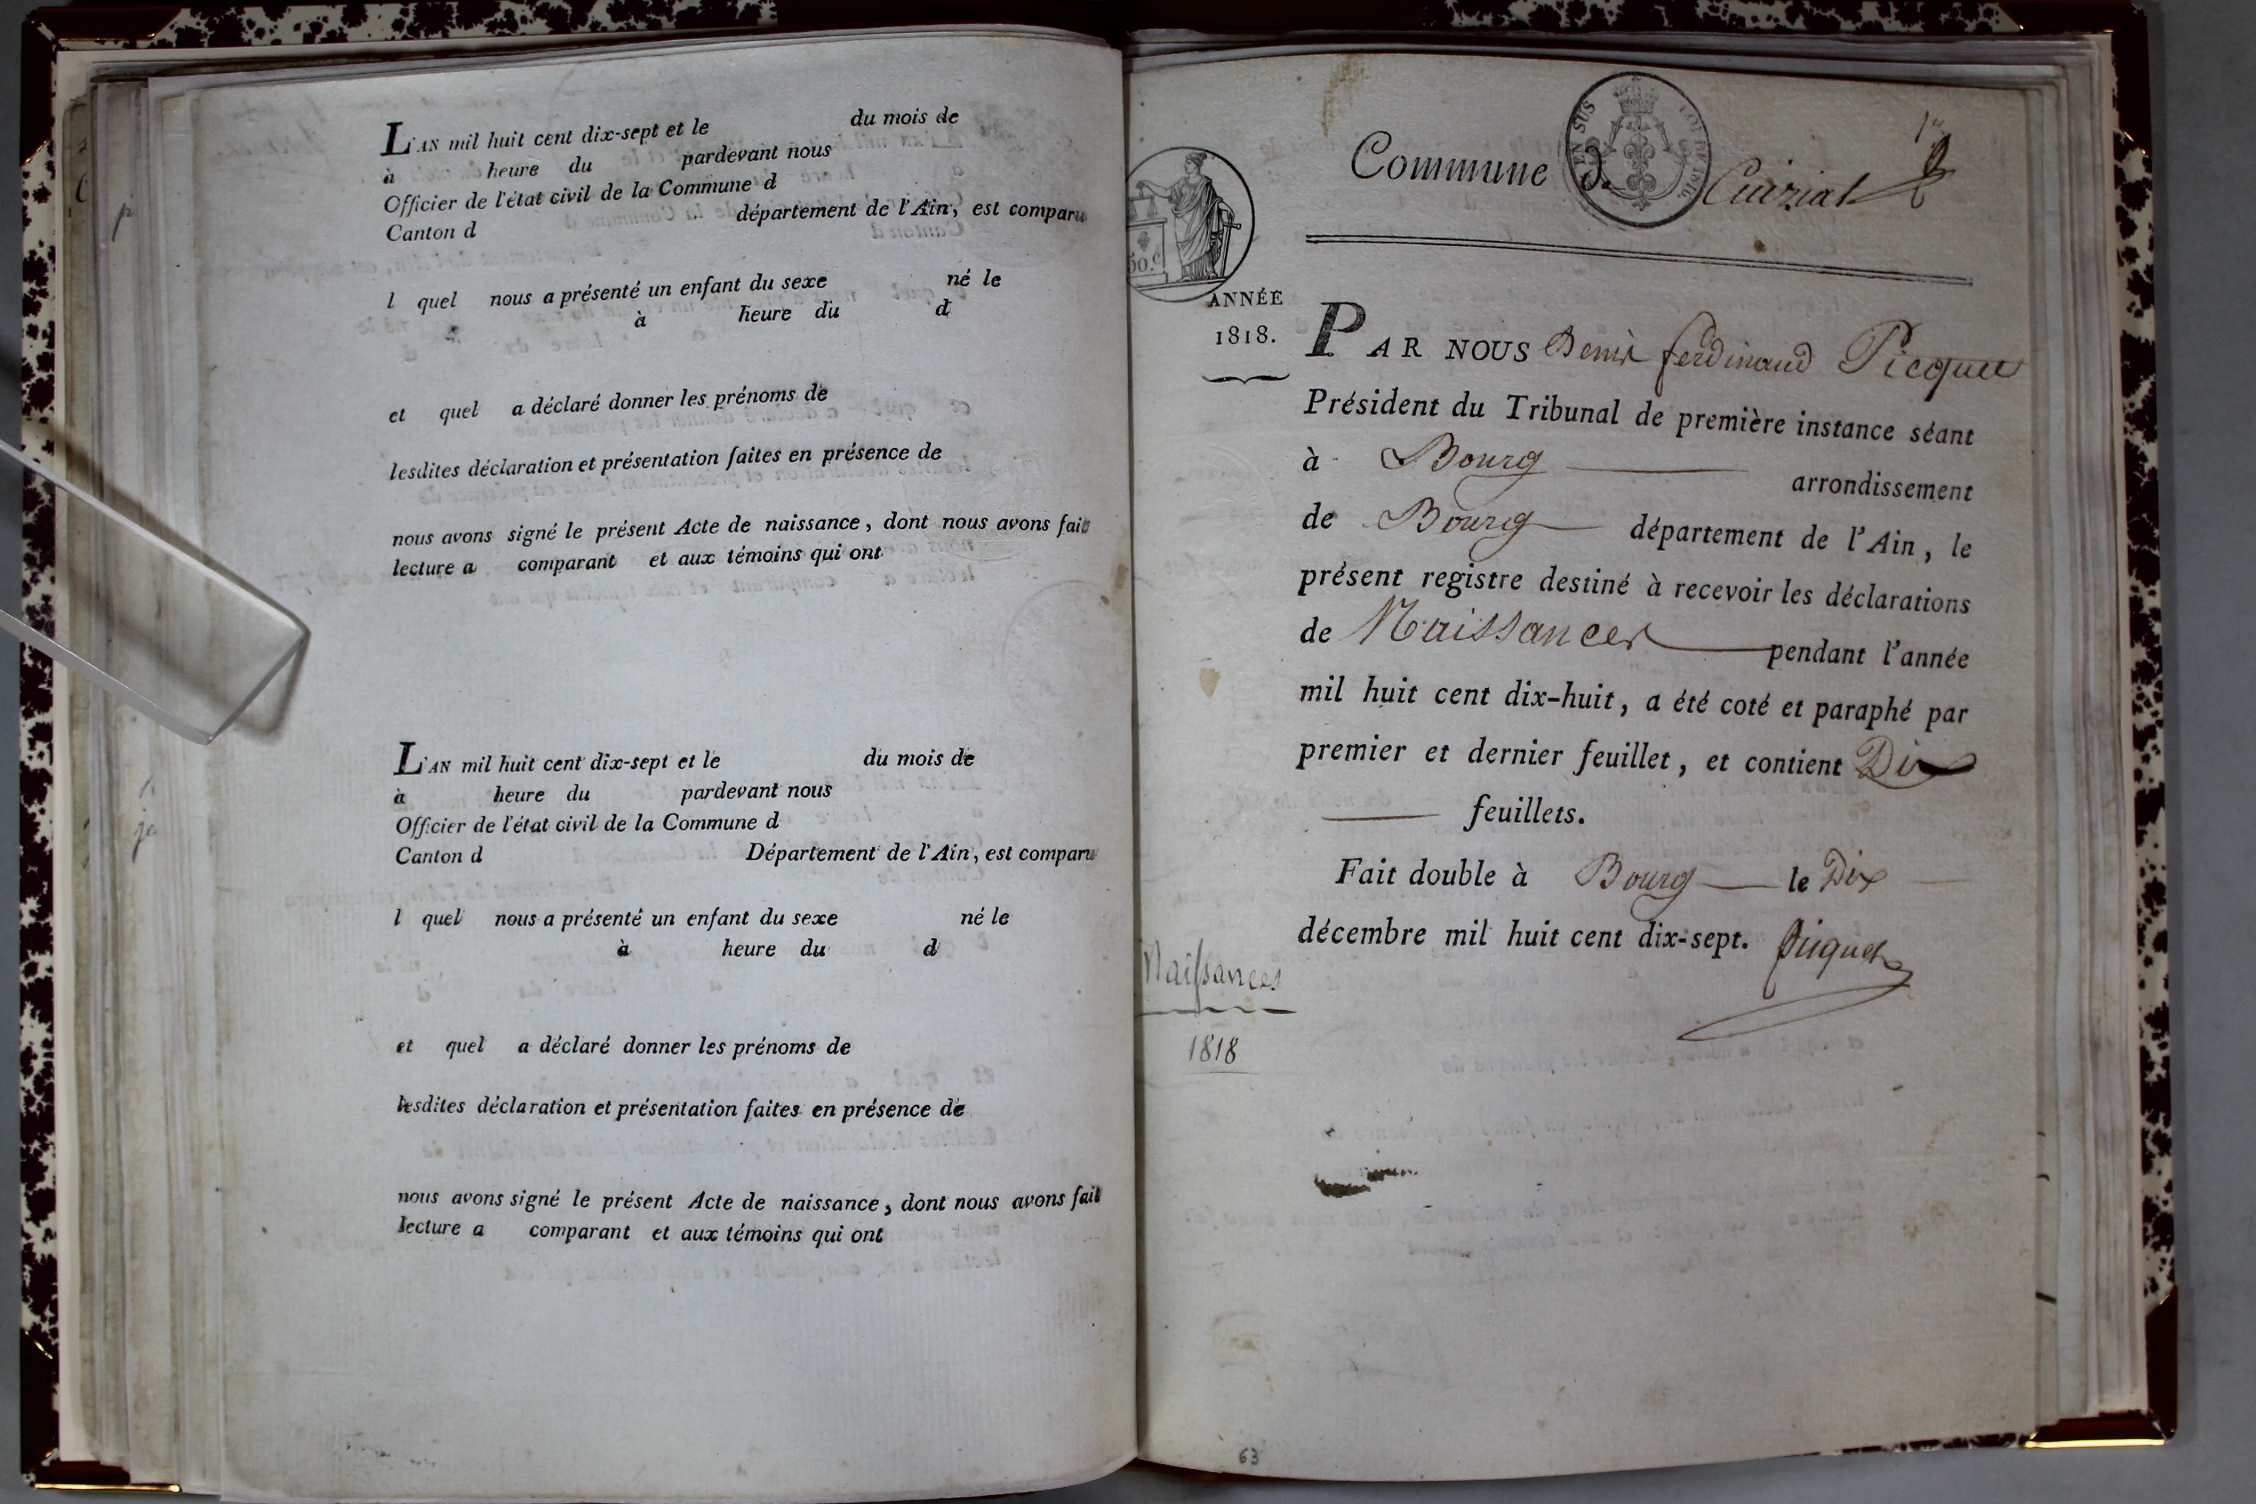 L'AN mil huit cent dix-sept et le du mois de
à heure du pardevant nous
Officier de l'état civil de la Commune d
Canton d département de l'Ain, est comparu
l quel nous a présenté un enfant du sexe né le
à heure du d
et quel a déclaré donner les prénoms de
lesdites déclaration et présentation faites en présence de
nous avons signé le présent Acte de naissance, dont nous avons fait
lecture a comparant et aux témoins qui ont
L'AN mil huit cent dix-sept et le du mois de
à heure du pardevant nous
Officier de l'état civil de la Commune d
Canton d Département de l'Ain, est comparu
l quel nous a présenté un enfant du sexe né le
à heure du d
et quel a déclaré donner les prénoms de
lesdites déclaration et présentation faites en présence de
nous avons signé le présent Acte de naissance, dont nous avons fait
lecture a comparant et aux témoins qui ont
EN SUS
LOI DE 1816
50.c
Commune de Cuiziat
1er
ANNÉE
1818.
PAR NOUS Denis ferdinand Picquet
Président du Tribunal de première instance séant
à Bourg arrondissement
de Bourg département de l'Ain, le
présent registre destiné à recevoir les déclarations
de Naissances pendant l'année
mil huit cent dix-huit, a été coté et paraphé par
premier et dernier feuillet, et contient Dix
feuillets.
Fait double à Bourg le Dix
décembre mil huit cent dix-sept. Picquet
Naissances
1818
63